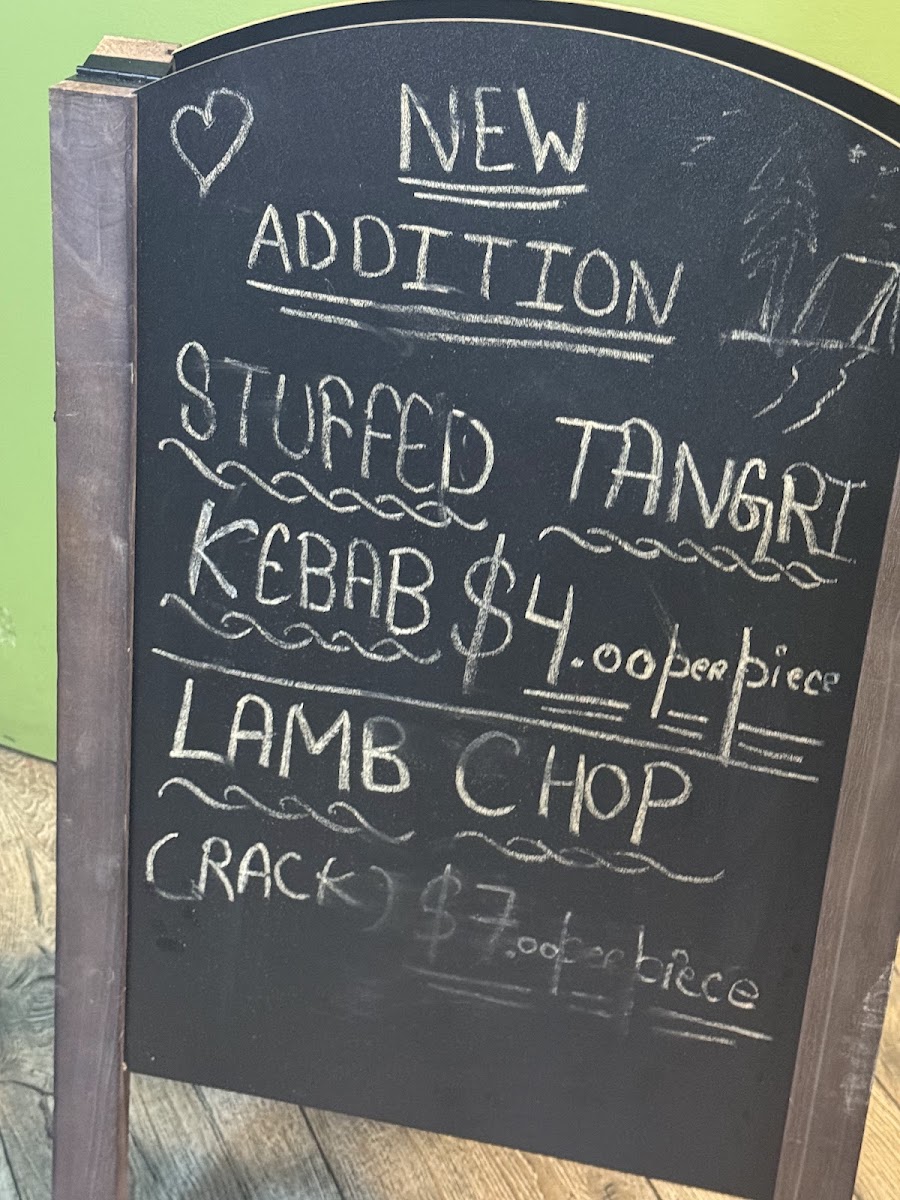 NEW
ADDITION
STUFFED TANGRI
KEBAB $4.00 per piece
LAMB CHOP
(RACK) $7.00 per piece